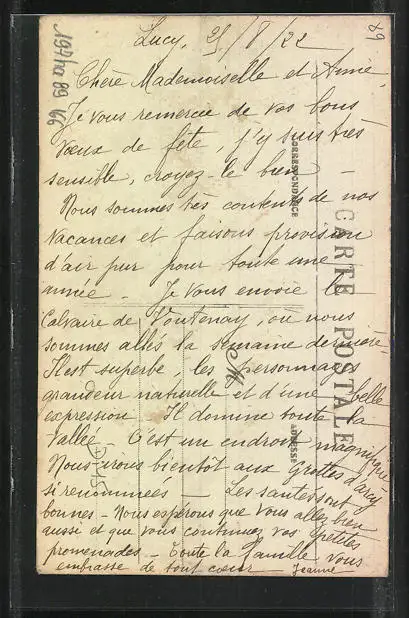 Lucy, 21/8/22
89
197ha 89 166
Chère Mademoiselle et Amie,
Je vous remercie de vos bons
vœux de fête, j'y suis très
sensible, croyez-le bien —
Nous sommes très contents de nos
vacances et faisons provision
d'air pur pour toute une
année — Je vous envoie le
Calvaire de Voutenay, où nous
sommes allés la semaine dernière.
Il est superbe, les personnages
grandeur naturelle et d'une belle
expression. Il domine toute la
vallée — C'est un endroit magnifique
Nous irons bientôt aux Grottes d'Arcy
si renommées — Les santés sont
bonnes — Nous espérons que vous allez bien
aussi et que vous continuez vos petites
promenades — Toute la famille vous
embrasse de tout cœur — Jeanne
CARTE POSTALE
CORRESPONDANCE
ADRESSE
M